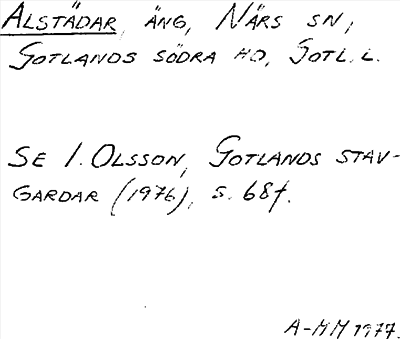 ALSTÄDAR, ÄNG, NÄRS SN,
GOTLANDS SÖDRA HD, GOTL. L.
SE I. OLSSON, GOTLANDS STAV-
GARDAR (1976), S. 68f.
A-MM 1977.